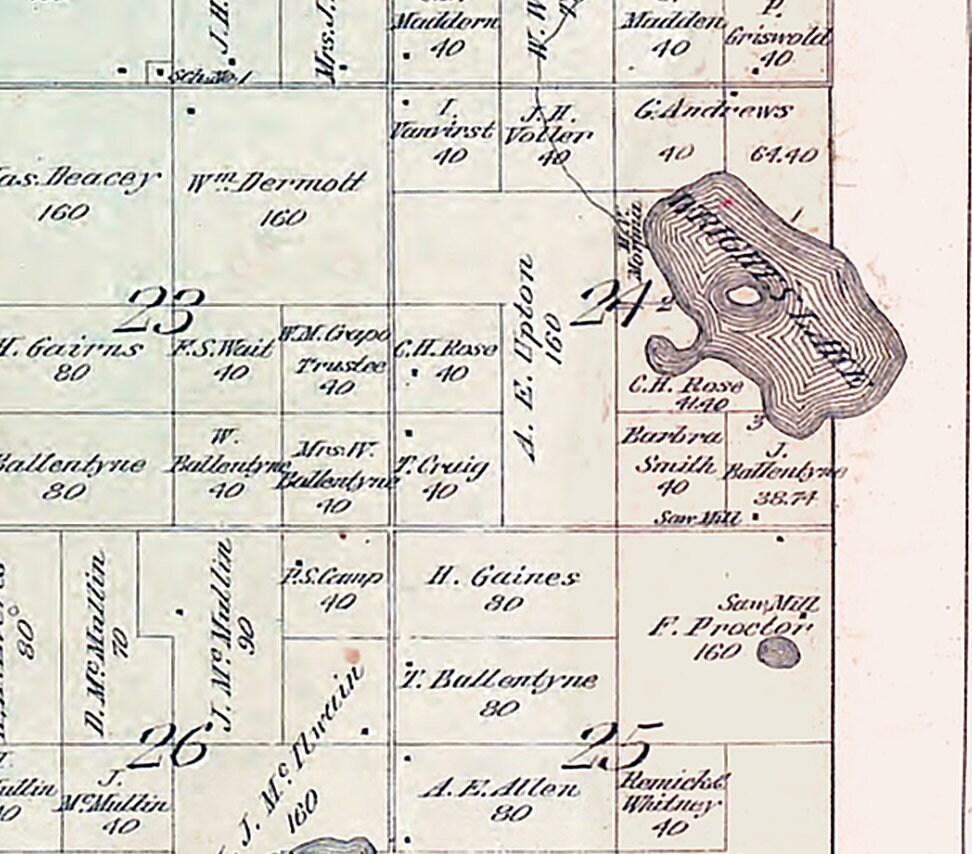 J.H.
Mrs. J.
Maddern
40
W. W
Madden
40
P.
Griswold
40
Sch. No. 1
I.
Vanvirst
40
J. H.
Voller
40
G. Andrews
40
64.40
as. Deacey
160
Wm. Dermott
160
WRIGHTS LAKE
1
A. E. Upton
160
23
24
2
H. Gairns
80
F. S. Wait
40
W. M. Crapo
Trustee
40
C. H. Rose
40
C. H. Rose
41.40
3
Ballentyne
80
W.
Ballentyne
40
Mrs. W.
Ballentyne
40
T. Craig
40
Barbra
Smith
40
Saw Mill
J.
Ballentyne
38.74
80
D. McMullin
70
J. McMullin
90
P. S. Camp
40
H. Gaines
80
Saw Mill
F. Proctor
160
T. Ballentyne
80
26
25
J. McIlwain
160
ullin
J.
McMullin
40
A. E. Allen
80
Remick &
Whitney
40